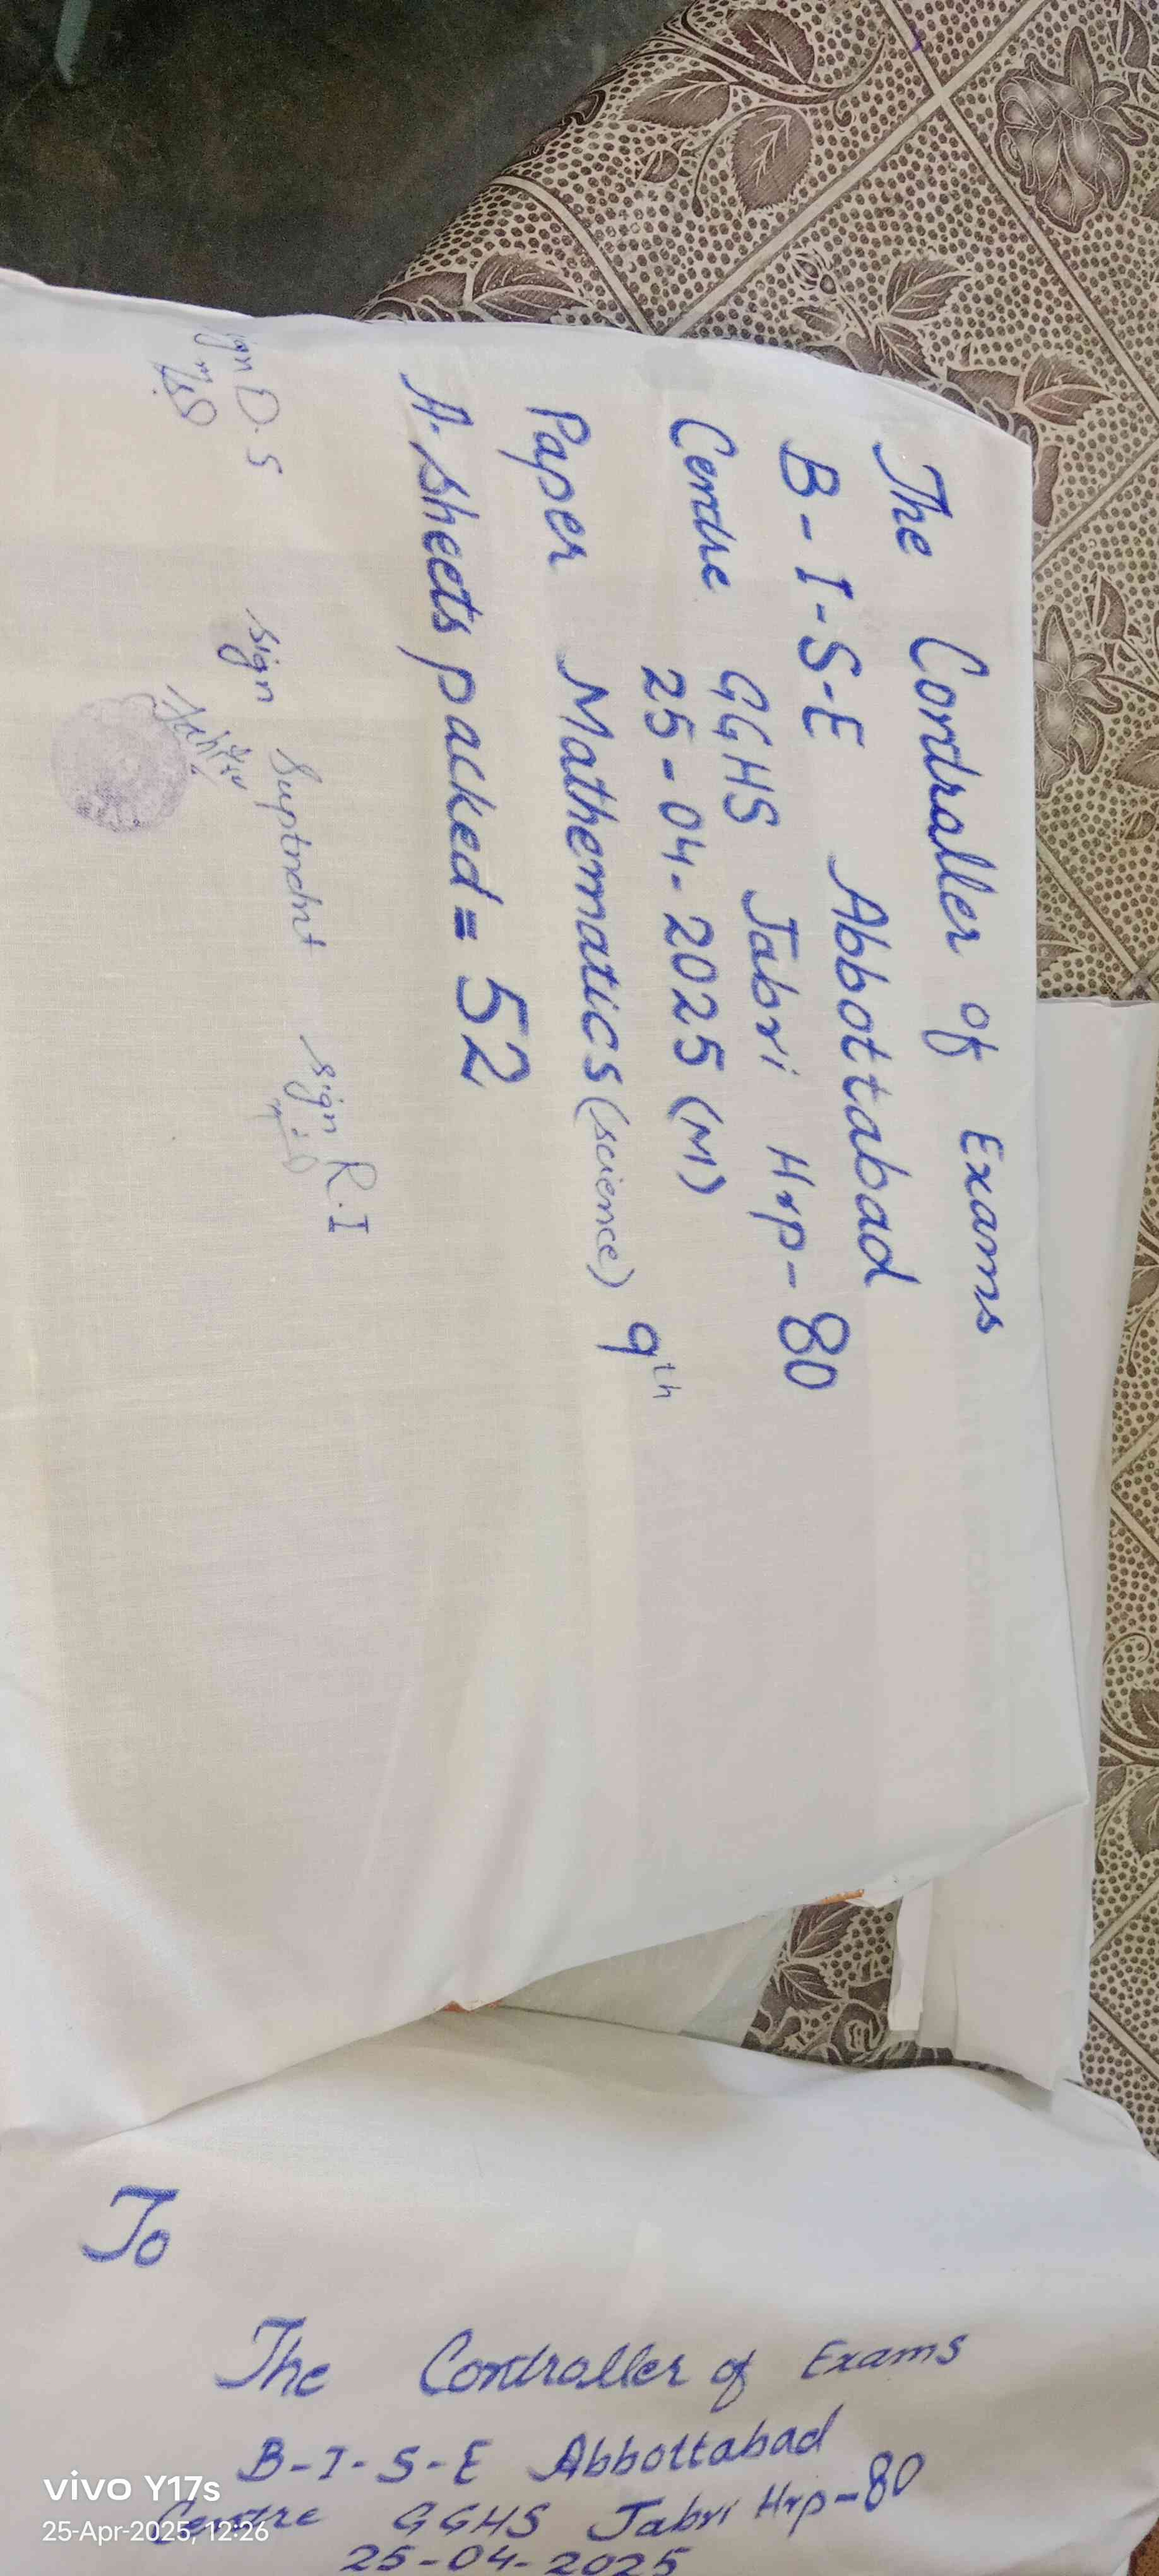 The Controller of Exams
B-I-S-E Abbottabad
Centre GGHS Jabri Hrp-80
25-04-2025 (M)
Paper Mathematics (science) 9th
A.sheets packed = 52
sign D.S
sign Suptndnt
sign R.I
To
The Controller of Exams
B-I-S-E Abbottabad
Centre GGHS Jabri Hrp-80
25-04-2025
vivo Y17s
25-Apr-2025, 12:26